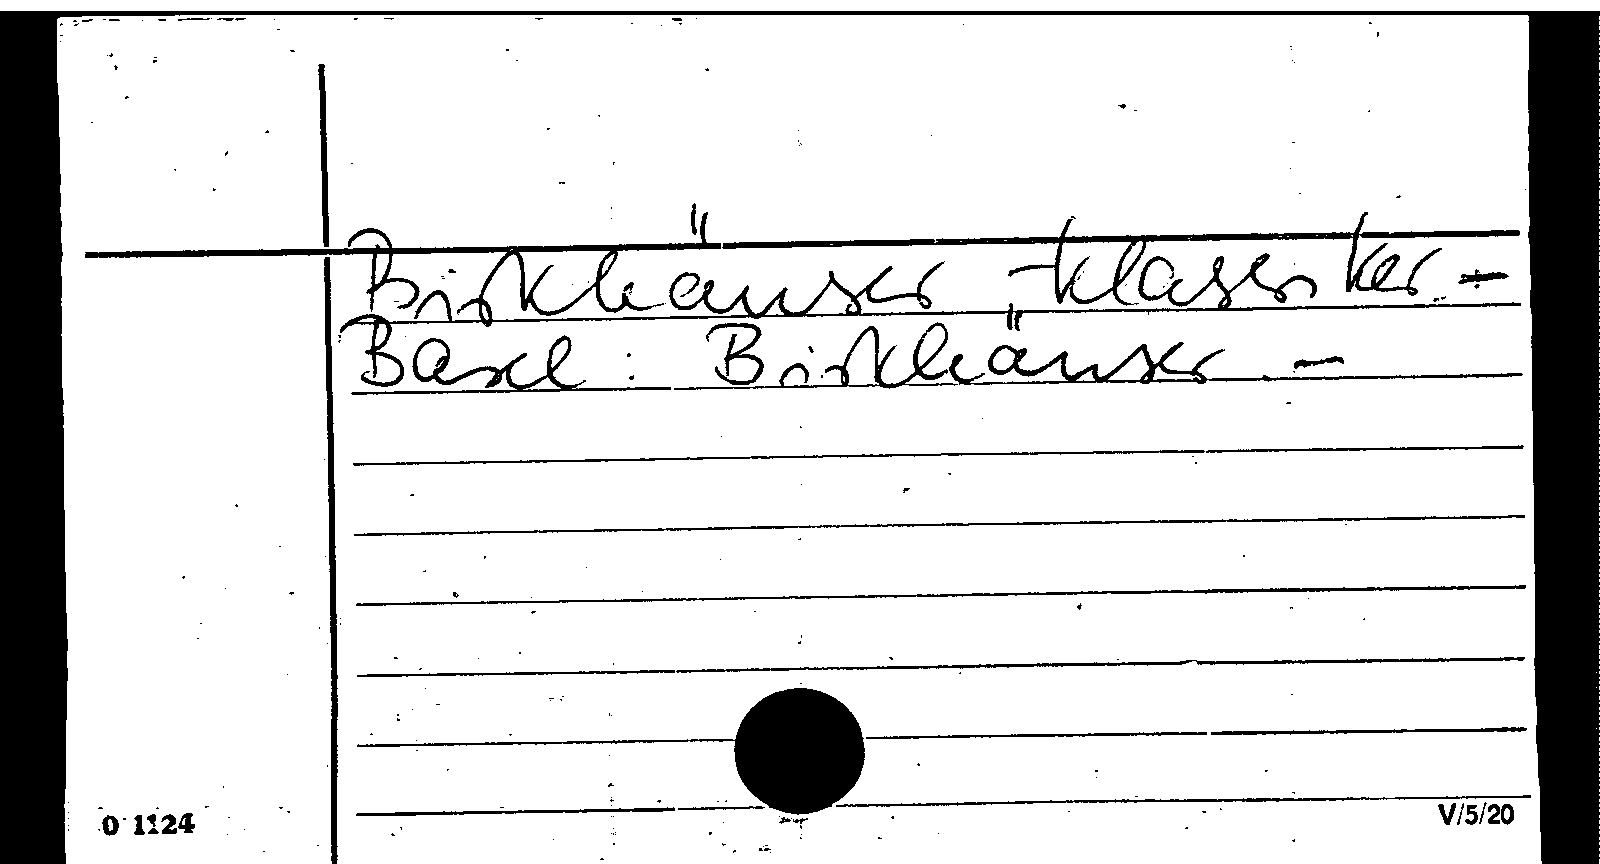 Birkhäuser -Klassiker. -
Basel : Birkhäuser . -
0 1124
V/5/20